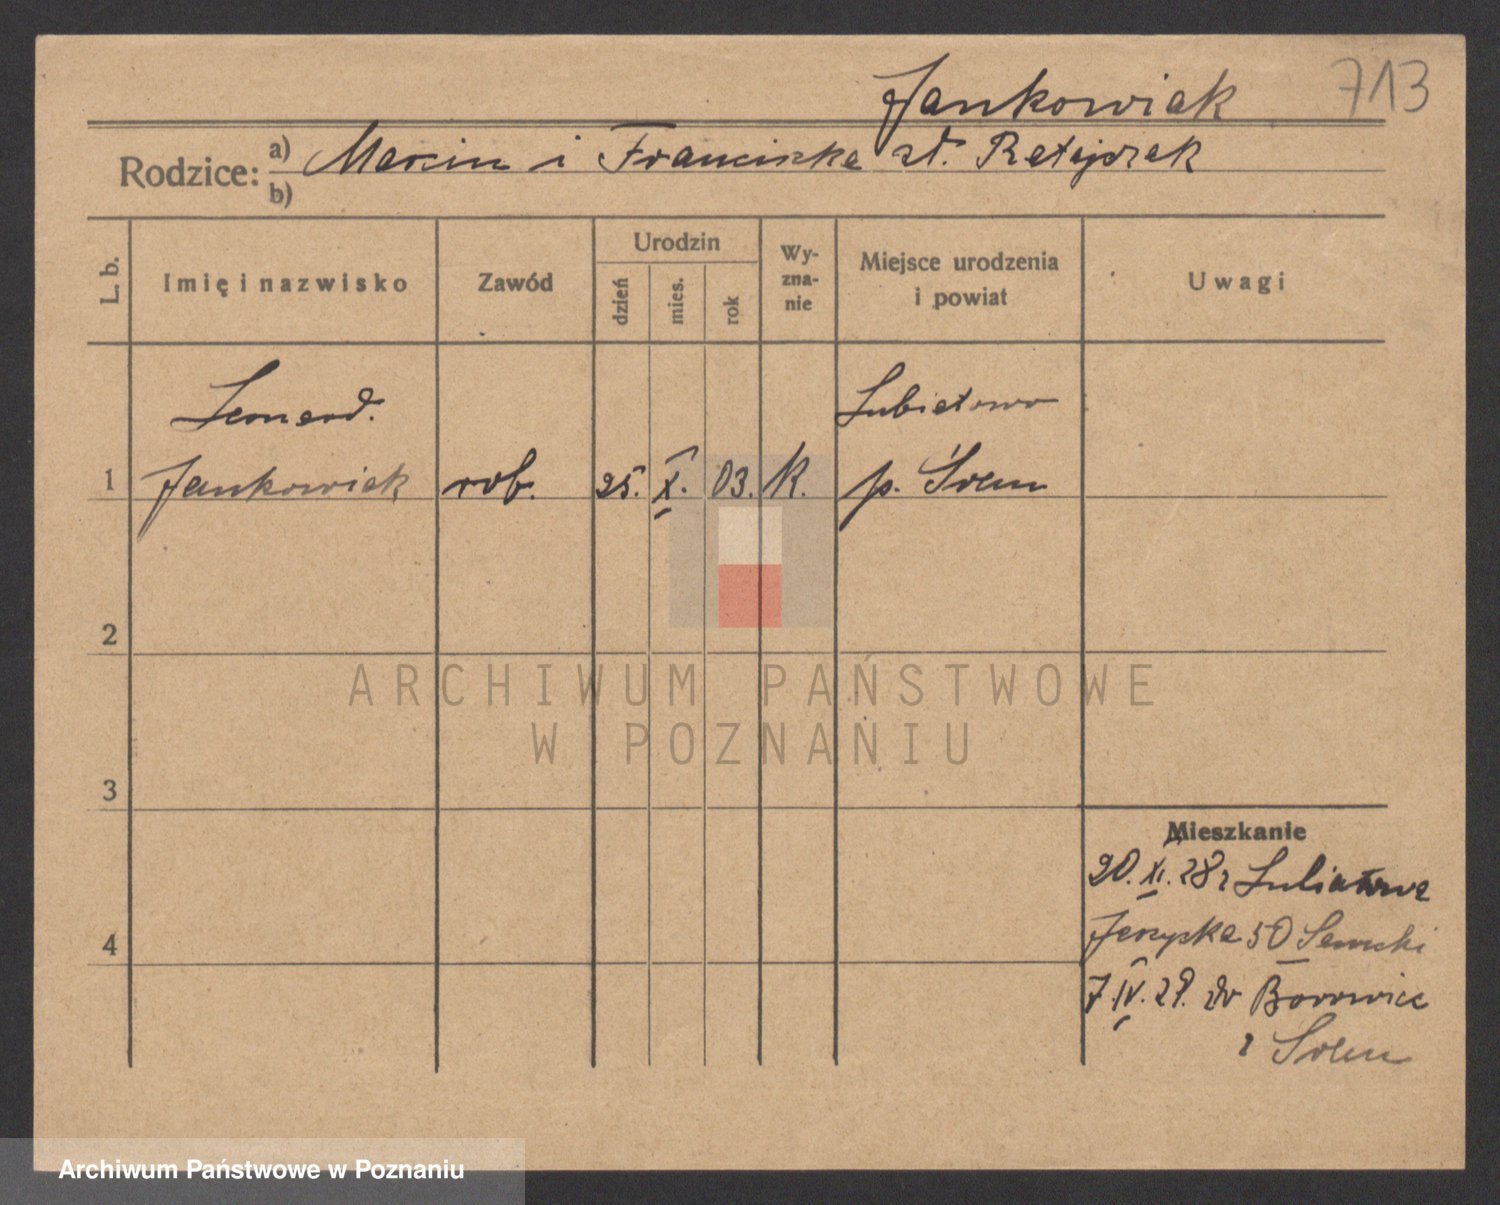 Jankowiak 713
Rodzice: a) Marcin i Franciszka zd. Ratajczak
b)
L. b.
Imię i nazwisko
Zawód
Urodzin
dzień
mies.
rok
Wy-
zna-
nie
Miejsce urodzenia
i powiat
Uwagi
Leonard.
Jankowiak
1
rob.
25.
X.
03.
K.
Lubiatowo
p. Śrem
2
3
4
Mieszkanie
20.XI.28 z Lubiatowa
50
7.IV.29. do Borowiec
Śrem
ARCHIWUM PAŃSTWOWE
W POZNANIU
Archiwum Państwowe w Poznaniu